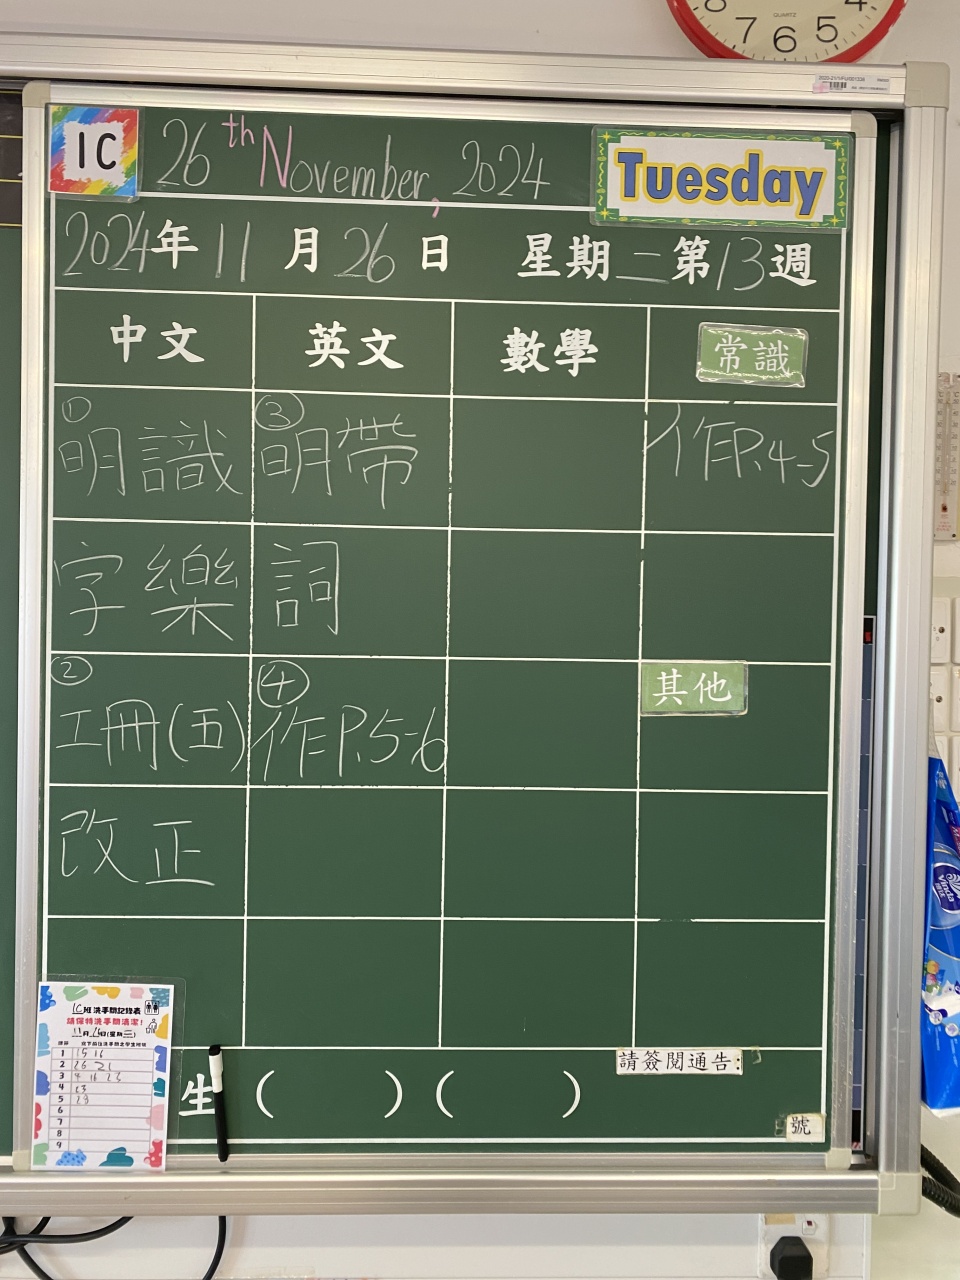 8 7 6 5 4
QUARTZ
1C
26th November, 2024
Tuesday
2024年11月26日 星期二第13週
中文 英文 數學 常識
①明識 ③明帶 作P.4-5
字樂 詞
其他
②工冊(五) ④作P.5-6
改正
1C班洗手間記錄表
請保持洗手間清潔!
11月26日(星期二)
1 15 16
2 26 21
3 4 16 23
4 23
5 23
6
7
8
9
生( )( )
請簽閱通告:
號
Vinda